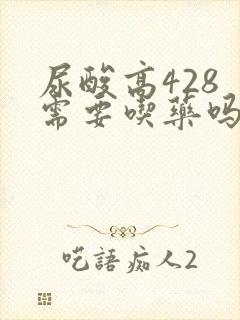 尿酸高428
需要喫藥吗
呓語痴人2